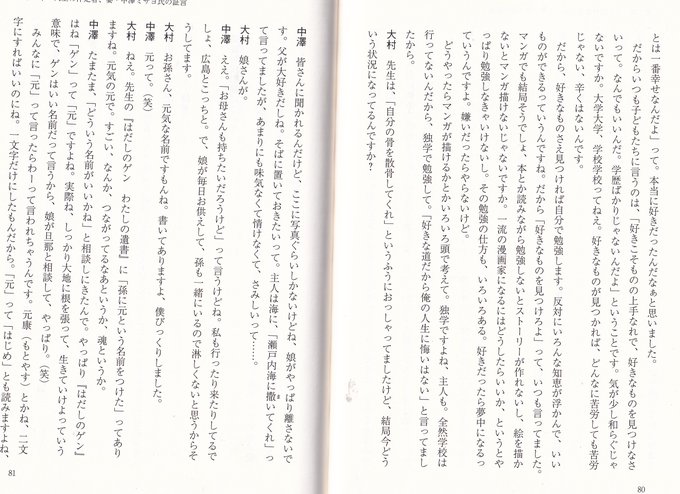 とは一番幸せなんだよ」って。本当に好きだったんだなぁと思いました。
だからいつも子どもたちに言うのは、「好きこそものの上手なれで、好きなものを見つけなさ
いって。なんでもいいんだ。学歴ばかりじゃないんだよ」ということです。気が少し和らぐじゃ
ないですか。大学大学、学校学校ってねえ。好きなものが見つかれば、どんなに苦労しても苦労
じゃない、辛くはないんです。
だから、好きなものさえ見つければ自分で勉強します。反対にいろんな知恵が浮かんで、いい
ものができるっていうんですね。だから「好きなものを見つけろよ」って、いつも言ってました。
マンガでも結局そうでしょ、本とか読みながら勉強しないとストーリーが作れないし、絵を描か
ないとマンガ描けないじゃないですか。一流の漫画家になるにはどうしたらいいか、というとや
っぱり勉強しなきゃいけないし。その勉強の仕方も、いろいろある。好きだったら夢中になるっ
ていうんですよ。嫌いだったらやらないけど。
どうやったらマンガが描けるかとかいろいろ頭で考えて。独学ですよね、主人も。全然学校は
行ってないんだから、独学で勉強して。「好きな道だから俺の人生に悔いはない」と言ってまし
たから。
大村 先生は、「自分の骨を散骨してくれ」というふうにおっしゃってましたけど、結局今どう
いう状況になってるんですか？
80
中澤 皆さんに聞かれるんだけど、ここに写真ぐらいしかないけどね、娘がやっぱり離さないで
す。父が大好きだしね。そばに置いておきたいって。主人は海に、「瀬戸内海に撒いてくれ」っ
て言ってましたが、あまりにも味気なくて情けなくて、さみしいって……。
大村 娘さんが。
中澤 ええ。「お母さんも持ちたいだろうけど」って言うけどね。私も行ったり来たりしてるで
しょ、広島とこっちと。で、娘が毎日お供えして、孫も一緒にいるので淋しくないと思うからそ
うしてます。
大村 お孫さん、元気な名前ですもんね。書いてありますよ、僕びっくりしました。
中澤 元って。（笑）
大村 ねえ。先生の『はだしのゲン わたしの遺書』に「孫に元という名前をつけた」ってあり
ますね。元気の元で。すごい、なんか、つながってるなあというか、魂というか。
中澤 たまたま、「どういう名前がいいかね」と相談しにきたんで。やっぱり『はだしのゲン』
はね「ゲン」って「元」ですよね。実際ね、しっかり大地に根を張って、生きていけよっていう
意味で、ゲンはいい名前だって言うから、娘が旦那と相談して、やっぱり。（笑）
みんなに「元」って言ったらわーって言われちゃうんです。元康（もとやす）とかね、二文
字にすればいいのにね。一文字だけにしたもんだから。「元」って「はじめ」とも読みますよね、
81